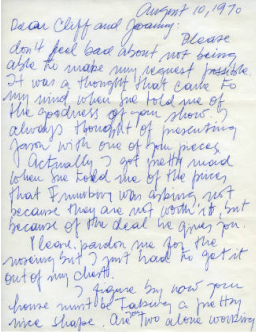 August 10, 1970
Dear Cliff and Joany:
Please
don't feel bad about not being
able to make my request possible.
It was a thought that came to
my mind when she told me of
the goodness of your show. I
always thought of presenting
Jason with one of your pieces
Actually I got pretty mad
when she told me of the prices
that was asking not
because they are not worth it, but
because of the deal he gives you.
Please pardon me for the
but I just had to get it
out of my chest.
I figure by now your
house must be taking a pretty
nice shape. Are you two alone working